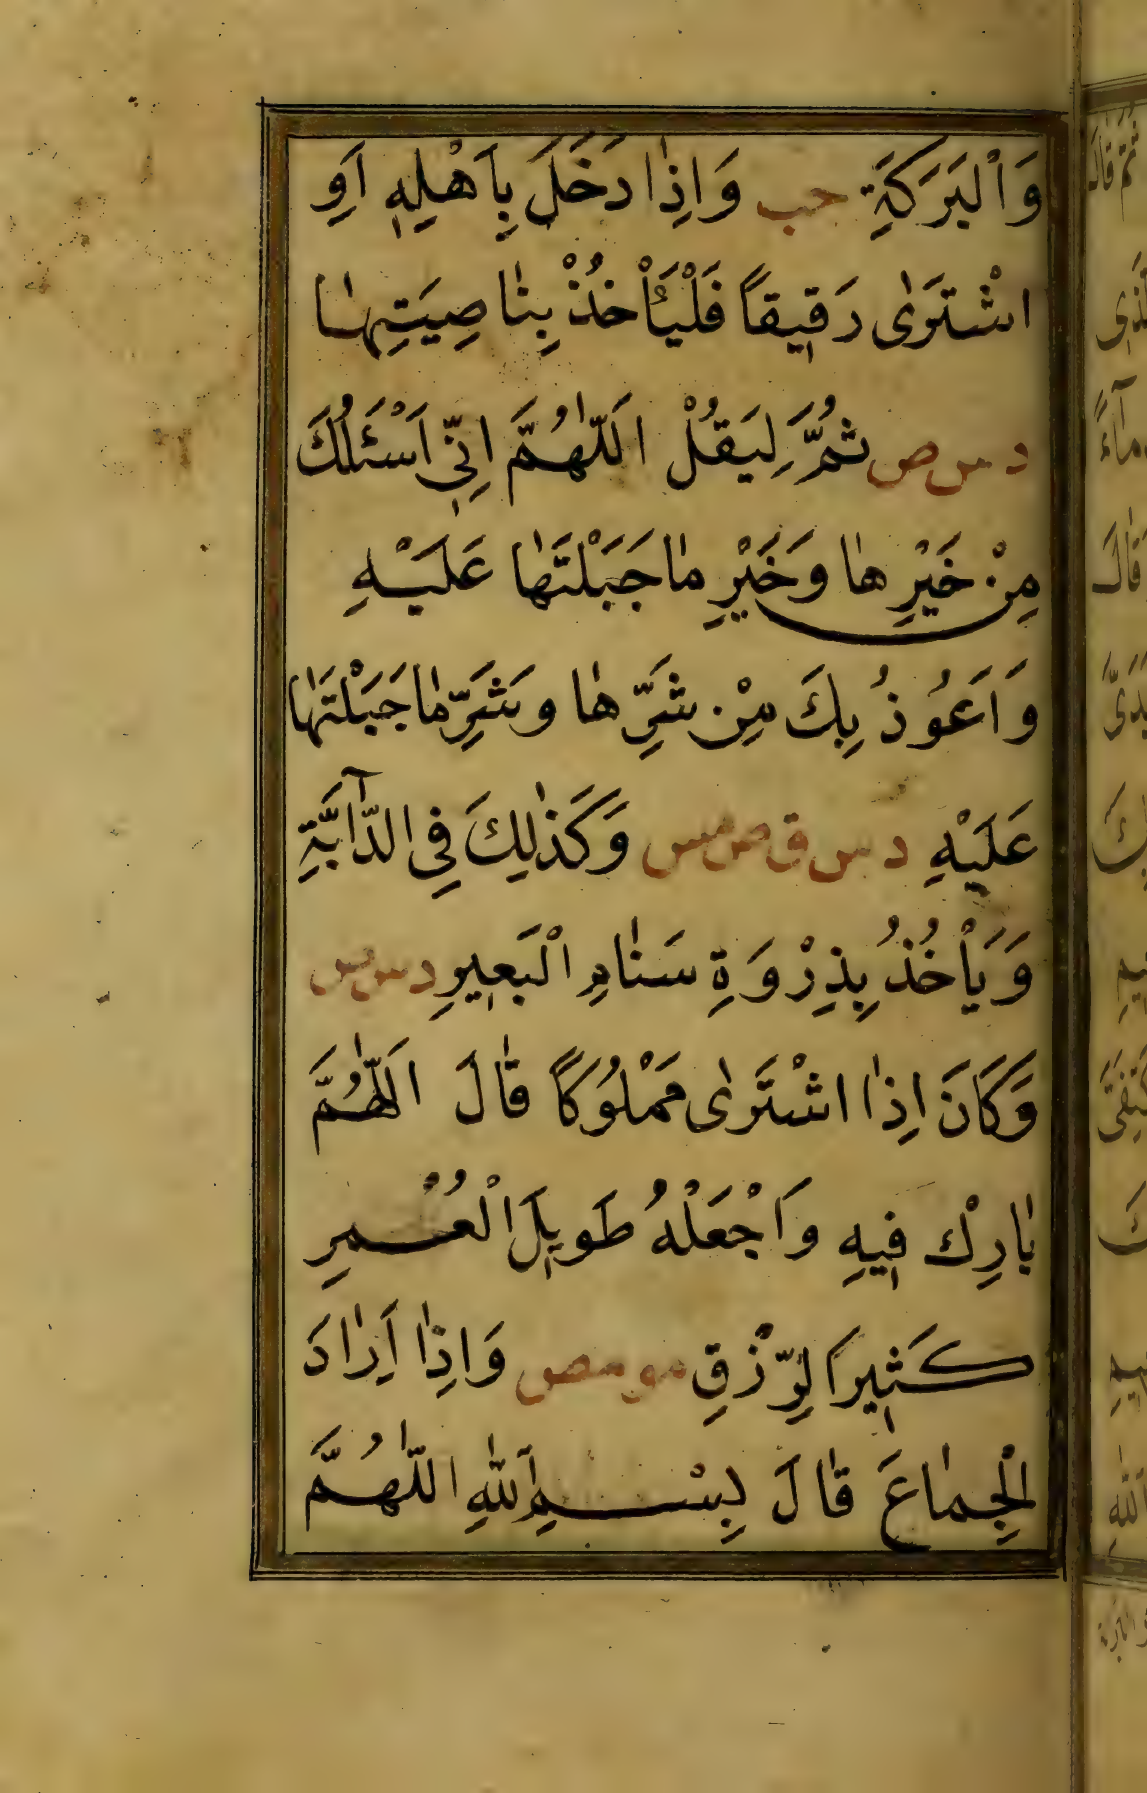 وَاْلبَرَكَةِ حب وَاِذٰا دَخَلَ بِاَهْلِهٖ اَوِ
اشْتَرٰى رَقٖيقاً فَلْيَأْخُذْ بِنٰاصِيَتِهٰا
د س ص ثُمَّ لِيَقُلْ اَللّٰهُمَّ اِنّٖى اَسْئَلُكَ
مِنْ خَيْرِهٰا وَخَيْرِ مٰا جَبَلْتَهٰا عَلَيْهِ
وَاَعُوذُ بِكَ مِنْ شَرِّهٰا وَشَرِّ مٰا جَبَلْتَهٰا
عَلَيْهِ د س ق ص مس وَكَذٰلِكَ فِى الدّٓابَّةِ
وَيَأْخُذُ بِذِرْوَةِ سَنٰامِ الْبَعٖيرِ د س س
وَكَانَ اِذٰا اشْتَرٰى مَمْلُوكًا قٰالَ اَللّٰهُمَّ
بٰارِكْ فٖيهِ وَاجْعَلْهُ طَوٖيلَ الْعُمْرِ
كَثٖيرَ الرِّزْقِ مو مص وَاِذٰا اَرٰادَ
الْجِمٰاعَ قٰالَ بِسْمِ اللّٰهِ اللّٰهُمَّ